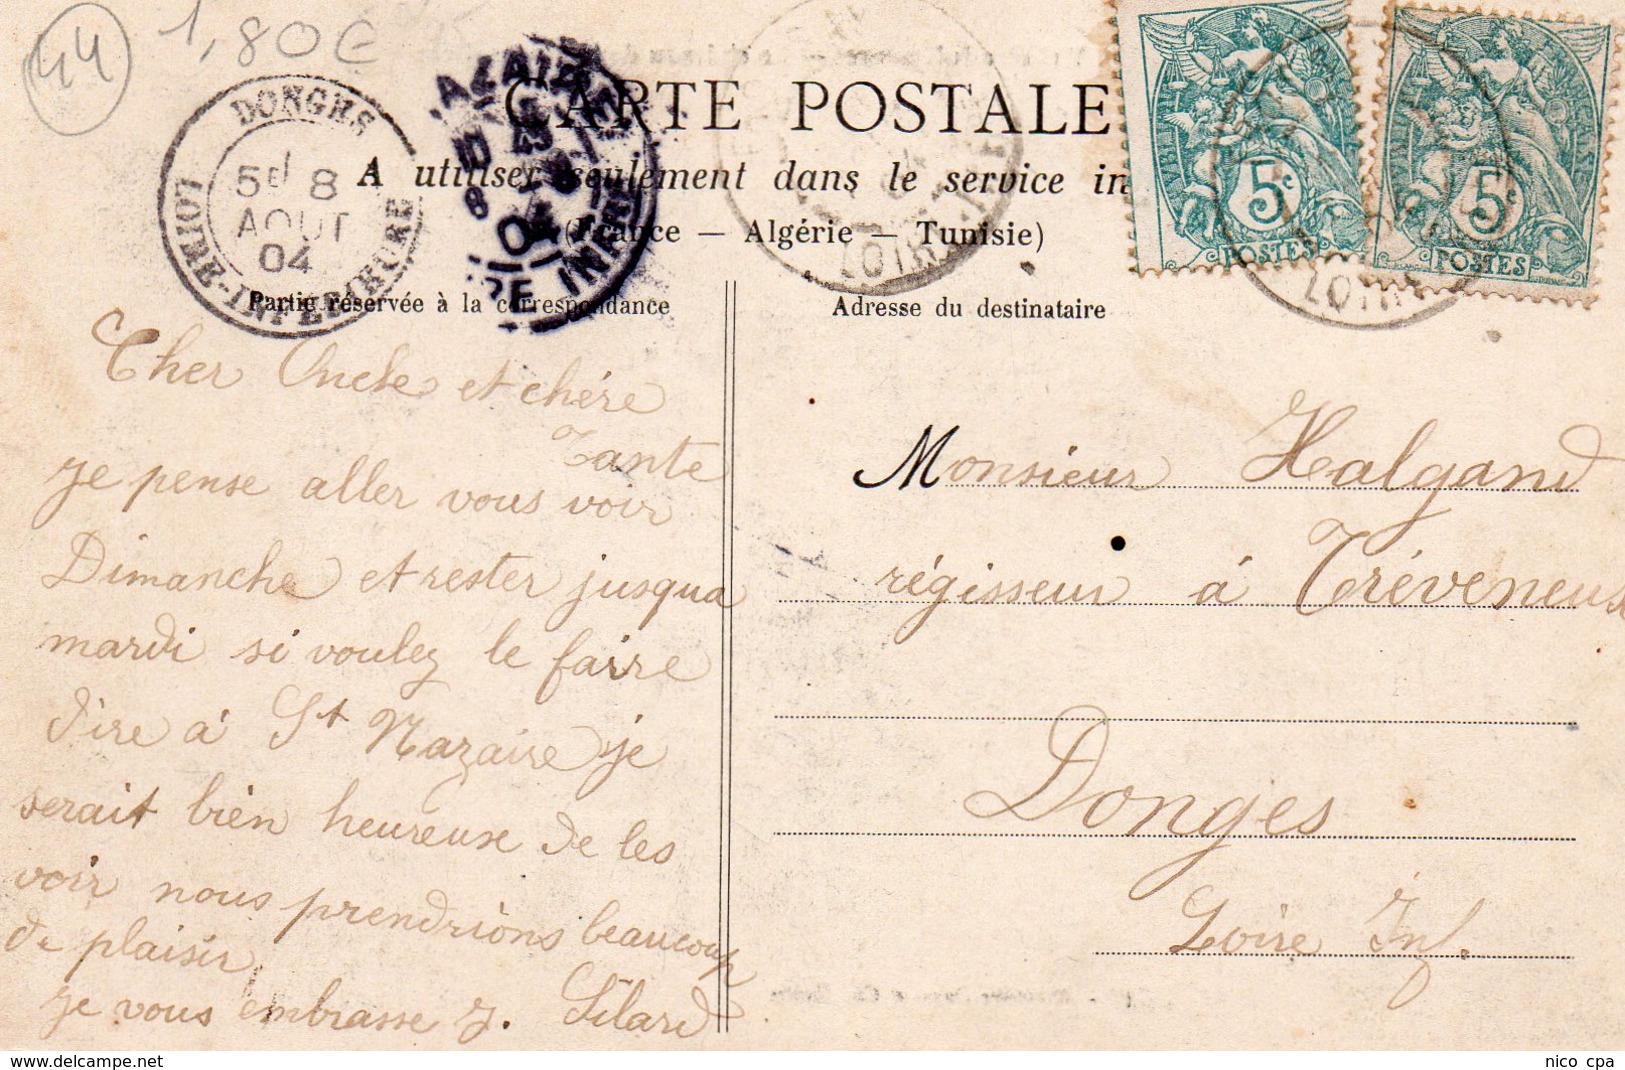 44
1,80€
DONGES
5E 8
AOUT
04
LOIRE-INFERIEURE
CARTE POSTALE
A utiliser seulement dans le service in
(France — Algérie — Tunisie)
Partie réservée à la correspondance
Adresse du destinataire
5c
POSTES
5c
POSTES
Cher Oncle et chére
Tante
je pense aller vous voir
Dimanche et rester jusqua
mardi si voulez le faire
dire à St Nazaire je
serait bien heureuse de les
voir nous prendrions beaucoup
de plaisir
je vous embrasse J. Silard
Monsieur Halgand
régisseur à Tréveneux
Donges
Loire Inf.
delcampe.net
nico_cpa